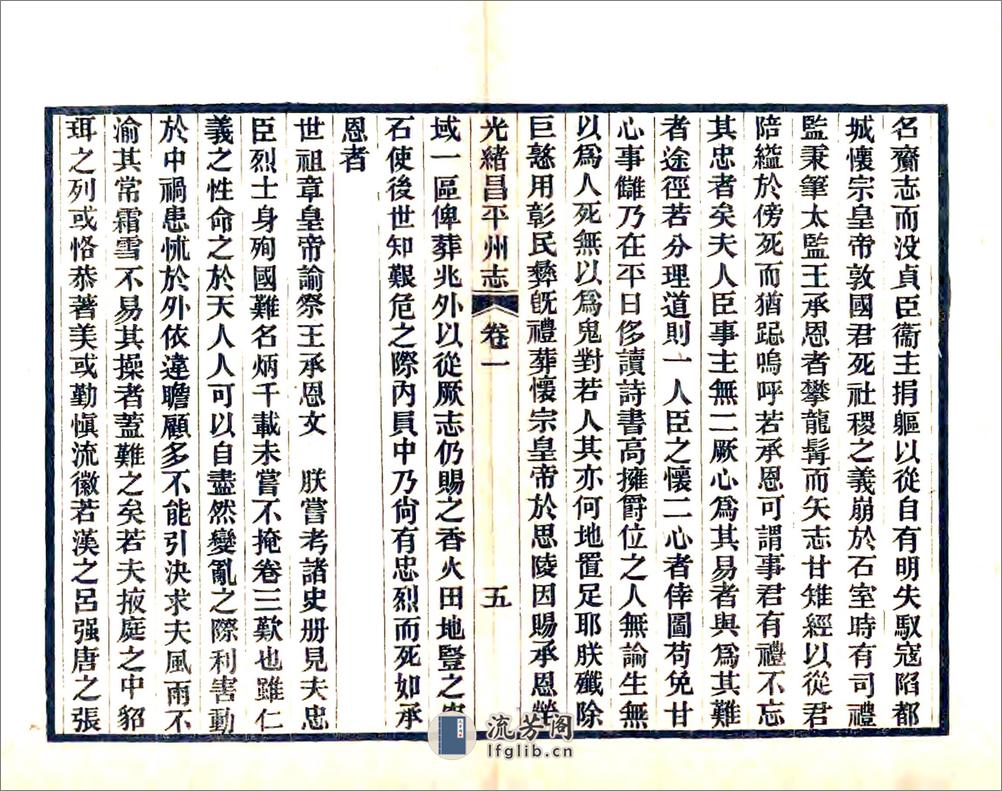 名齎志而没貞臣衞主捐軀以從自有明失馭寇陷都
城懷宗皇帝敦國君死社稷之義崩於石室時有司禮
監秉筆太監王承恩者攀龍髯而矢志甘雉經以從君
陪縊於傍死而猶跽嗚呼若承恩可謂事君有禮不忘
其忠者矣夫人臣事主無二厥心爲其易者與爲其難
者途徑若分理道則一人臣之懷二心者倖圖苟免甘
心事讎乃在平日侈讀詩書高擁爵位之人無論生無
以爲人死無以爲鬼對若人其亦何地置足耶朕殲除
巨憝用彰民彝旣禮葬懷宗皇帝於思陵因賜承恩塋
光緒昌平州志 卷一 五
域一區俾葬兆外以從厥志仍賜之香火田地豎之
石使後世知艱危之際內員中乃尙有忠烈而死如承
恩者
世祖章皇帝諭祭王承恩文 朕嘗考諸史册見夫忠
臣烈士身殉國難名炳千載未嘗不掩卷三歎也雖仁
義之性命之於天人人可以自盡然變亂之際利害動
於中禍患怵於外依違瞻顧多不能引決求夫風雨不
渝其常霜雪不易其操者蓋難之矣若夫掖庭之中貂
珥之列或恪恭著美或勤慎流徽若漢之呂强唐之張
流芳阁
lfglib.cn